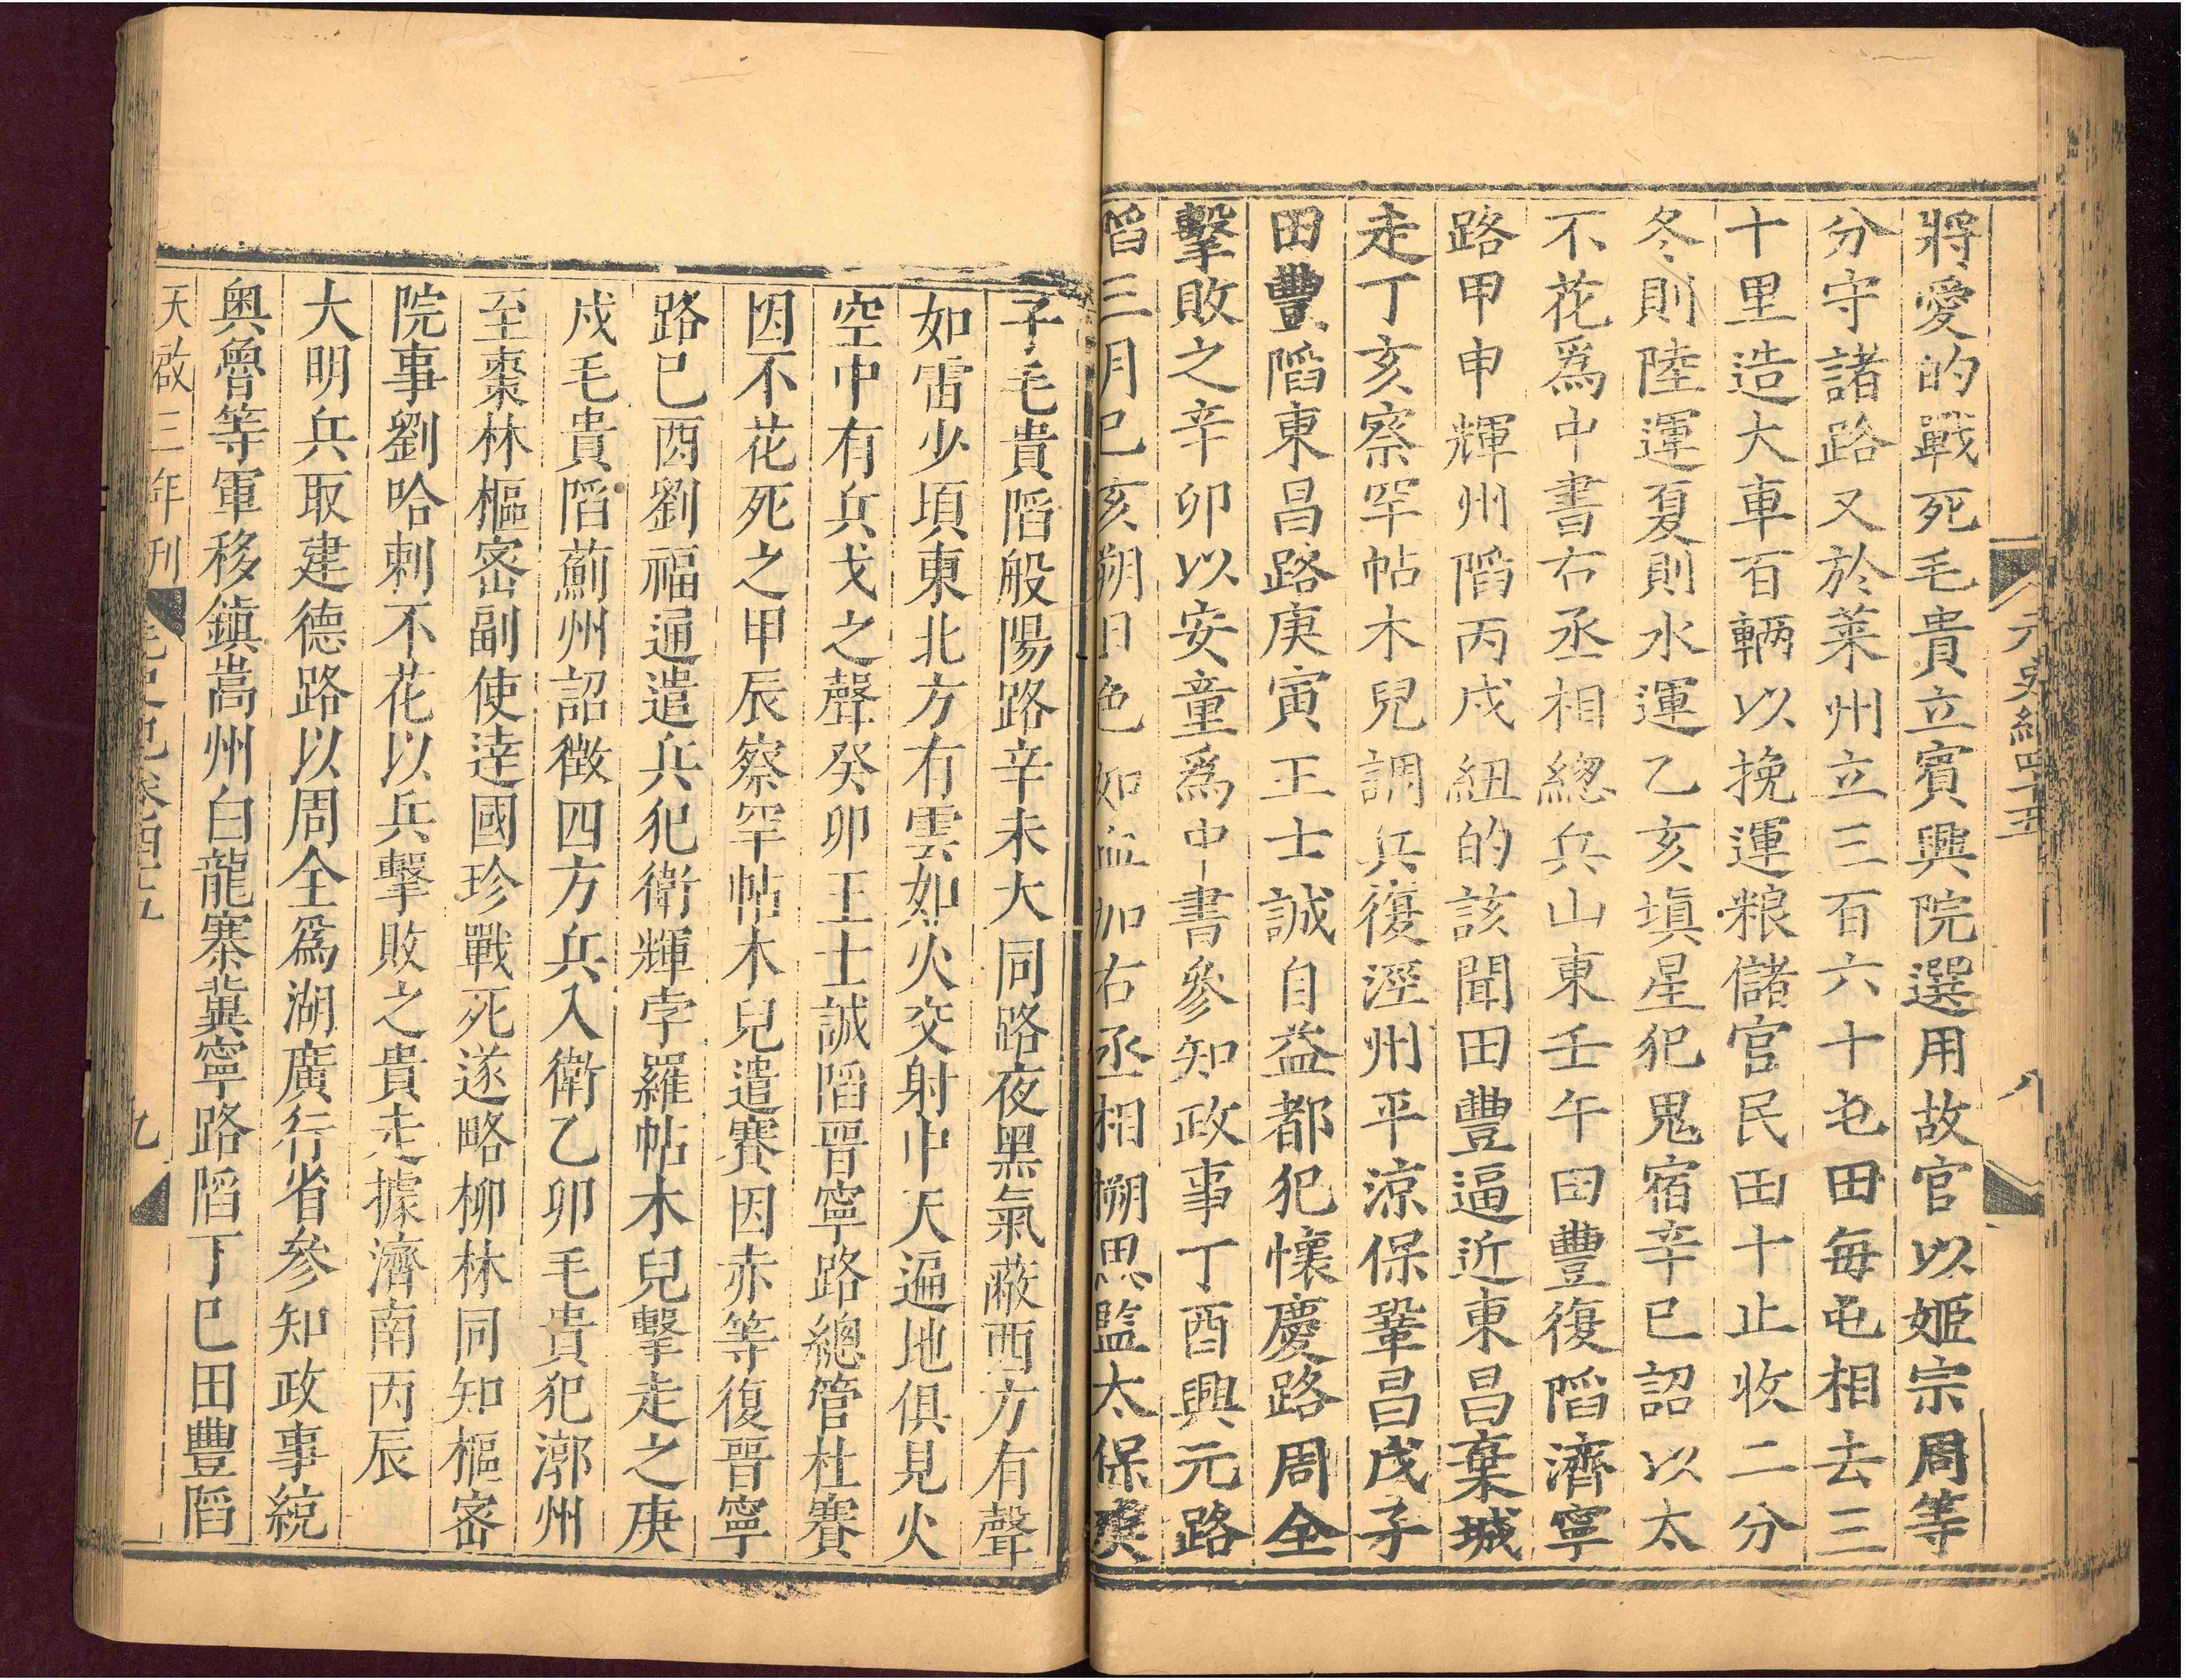 元史紀四十五
八
將愛的戰死毛貴立賓興院選用故官以姬宗周等
分守諸路又於萊州立三百六十屯田每屯相去三
十里造大車百輛以挽運粮儲官民田十止收二分
冬則陸運夏則水運乙亥塡星犯鬼宿辛巳詔以太
不花爲中書右丞相總兵山東壬午田豐復陷濟寧
路甲申輝州陷丙戌紐的該聞田豐逼近東昌棄城
走丁亥察罕帖木兒調兵復涇州平涼保鞏昌戊子
田豐陷東昌路庚寅王士誠自益都犯懷慶路周全
擊敗之辛卯以安童爲中書參知政事丁酉興元路
陷三月己亥朔日色如血加右丞相搠思監太保癸
子毛貴陷般陽路辛未大同路夜黑氣蔽西方有聲
如雷少頃東北方有雲如火交射中天遍地俱見火
空中有兵戈之聲癸卯王士誠陷晉寧路總管杜賽
因不花死之甲辰察罕帖木兒遣賽因赤等復晉寧
路己酉劉福通遣兵犯衛輝孛羅帖木兒擊走之庚
戌毛貴陷薊州詔徵四方兵入衛乙卯毛貴犯漷州
至棗林樞密副使達國珍戰死遂略柳林同知樞密
院事劉哈剌不花以兵擊敗之貴走據濟南丙辰
大明兵取建德路以周全爲湖廣行省參知政事統
奧魯等軍移鎮嵩州白龍寨冀寧路陷丁巳田豐陷
天啟三年刊
元史紀卷四十五
九